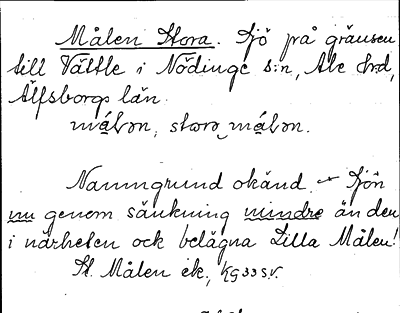 Målen Stora. Sjö på gränsen
till Vättle i Nödinge s:n, Ale hrd,
Älfsborgs län.
målən, storə målən.
Namngrund okänd. – Sjön
nu genom sänkning mindre än den
i närheten ock belägna Lilla Målen!
St. Målen ek., kg 33 s.v.